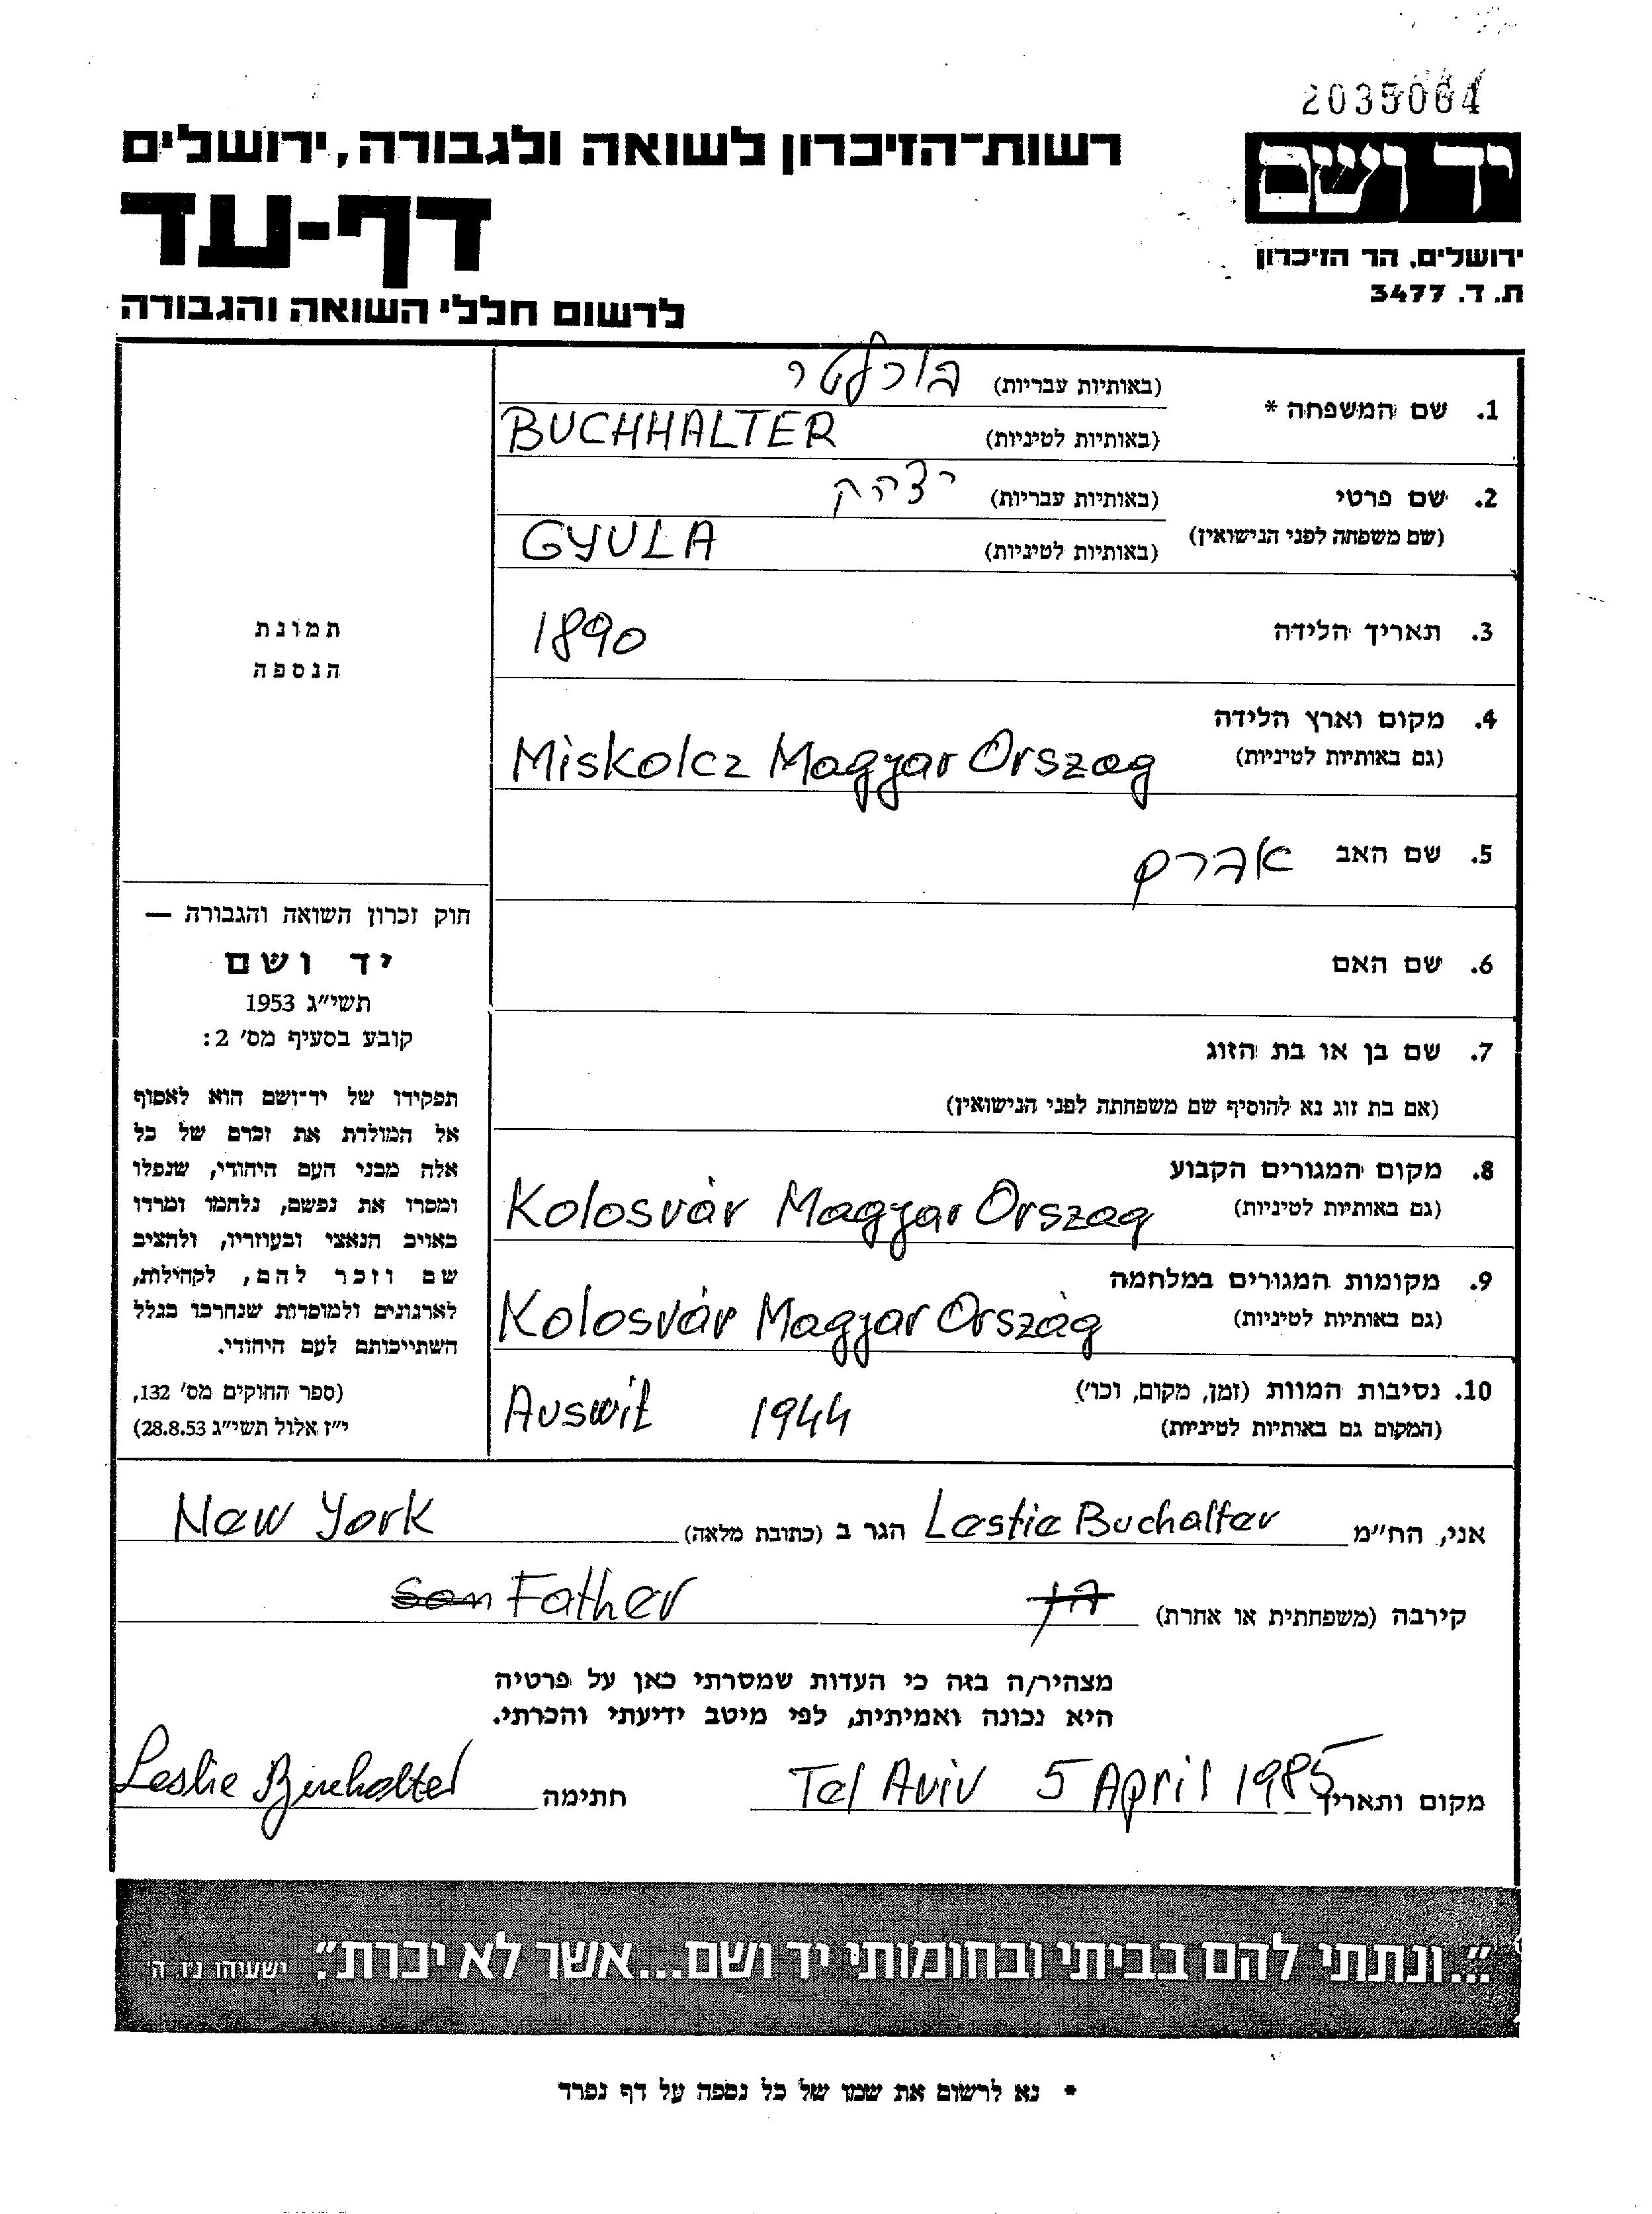 2035064
רשות־הזיכרון לשואה ולגבורה, ירושלים
יד ושם
דף-עד
ירושלים, הר הזיכרון
ת. ד. 3477
לרשום חללי השואה והגבורה
1. שם המשפחה *
(באותיות עבריות) בוכלטר
(באותיות לטיניות) BUCHHALTER
2. שם פרטי
(שם משפחה לפני הנישואין)
(באותיות עבריות) יצחק
(באותיות לטיניות) GYULA
3. תאריך הלידה 1890
4. מקום וארץ הלידה
(גם באותיות לטיניות) Miskolcz Magyar Orszag
5. שם האב אברם
6. שם האם
7. שם בן או בת הזוג
(אם בת זוג נא להוסיף שם משפחתה לפני הנישואין)
8. מקום המגורים הקבוע
(גם באותיות לטיניות) Kolosvár Magyar Orszag
9. מקומות המגורים במלחמה
(גם באותיות לטיניות) Kolosvár MagyarOrszág
10. נסיבות המוות (זמן, מקום, וכו')
(המקום גם באותיות לטיניות) Auswit 1944
תמונת
הנספה
חוק זכרון השואה והגבורה —
יד ושם
תשי"ג 1953
קובע בסעיף מס' 2:
תפקידו של יד־ושם הוא לאסוף
אל המולדת את זכרם של כל
אלה מבני העם היהודי, שנפלו
ומסרו את נפשם, נלחמו ומרדו
באויב הנאצי ובעוזריו, ולהציב
שם וזכר להם, לקהילות,
לארגונים ולמוסדות שנחרבו בגלל
השתייכותם לעם היהודי.
(ספר החוקים מס' 132,
י"ז אלול תשי"ג 28.8.53)
אני, הח"מ Leslie Buchalter הגר ב (כתובת מלאה) New York
קירבה (משפחתית או אחרת) בן son Father
מצהיר/ה בזה כי העדות שמסרתי כאן על פרטיה
היא נכונה ואמיתית, לפי מיטב ידיעתי והכרתי.
מקום ותאריך Tel Aviv 5 April 1985 חתימה Leslie Buchalter
"...ונתתי להם בביתי ובחומותי יד ושם...אשר לא יכרת". ישעיהו נ״ו, ה׳
* נא לרשום את שמו של כל נספה על דף נפרד